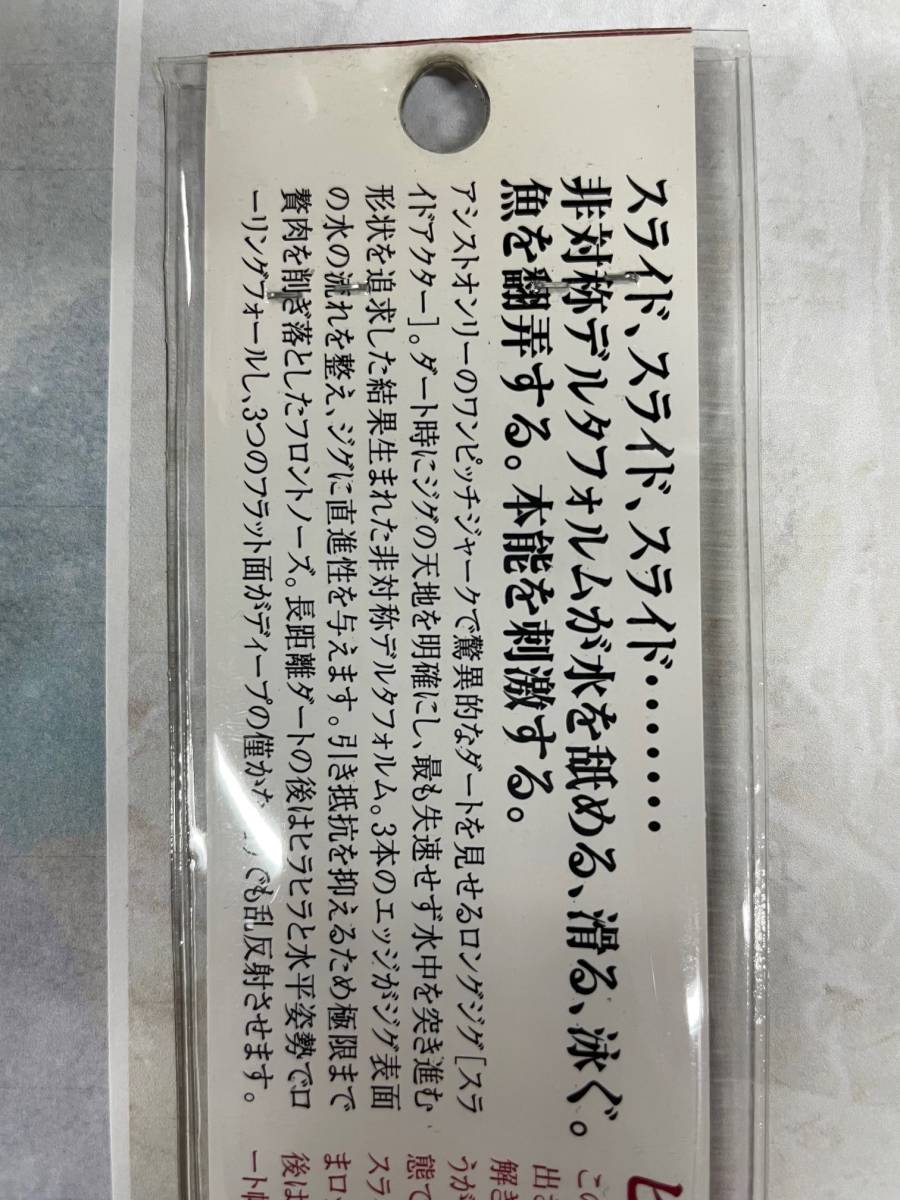 スライド、スライド、スライド‥‥‥
非対称デルタフォルムが水を舐める、滑る、泳ぐ。
魚を翻弄する。本能を刺激する。
アシストオンリーのワンピッチジャークで驚異的なダートを見せるロングジグ[スラ
イドアクター]。ダート時にジグの天地を明確にし、最も失速せず水中を突き進む
形状を追求した結果生まれた非対称デルタフォルム。3本のエッジがジグ表面
の水の流れを整え、ジグに直進性を与えます。引き抵抗を抑えるため極限まで
贅肉を削ぎ落としたフロントノーズ。長距離ダートの後はヒラヒラと水平姿勢でロ
ーリングフォールし、3つのフラット面がディープの僅かな でも乱反射させます。
ヒ
この
解き
出さ
うが
態で
スラ
まロッ
後は
ート幅